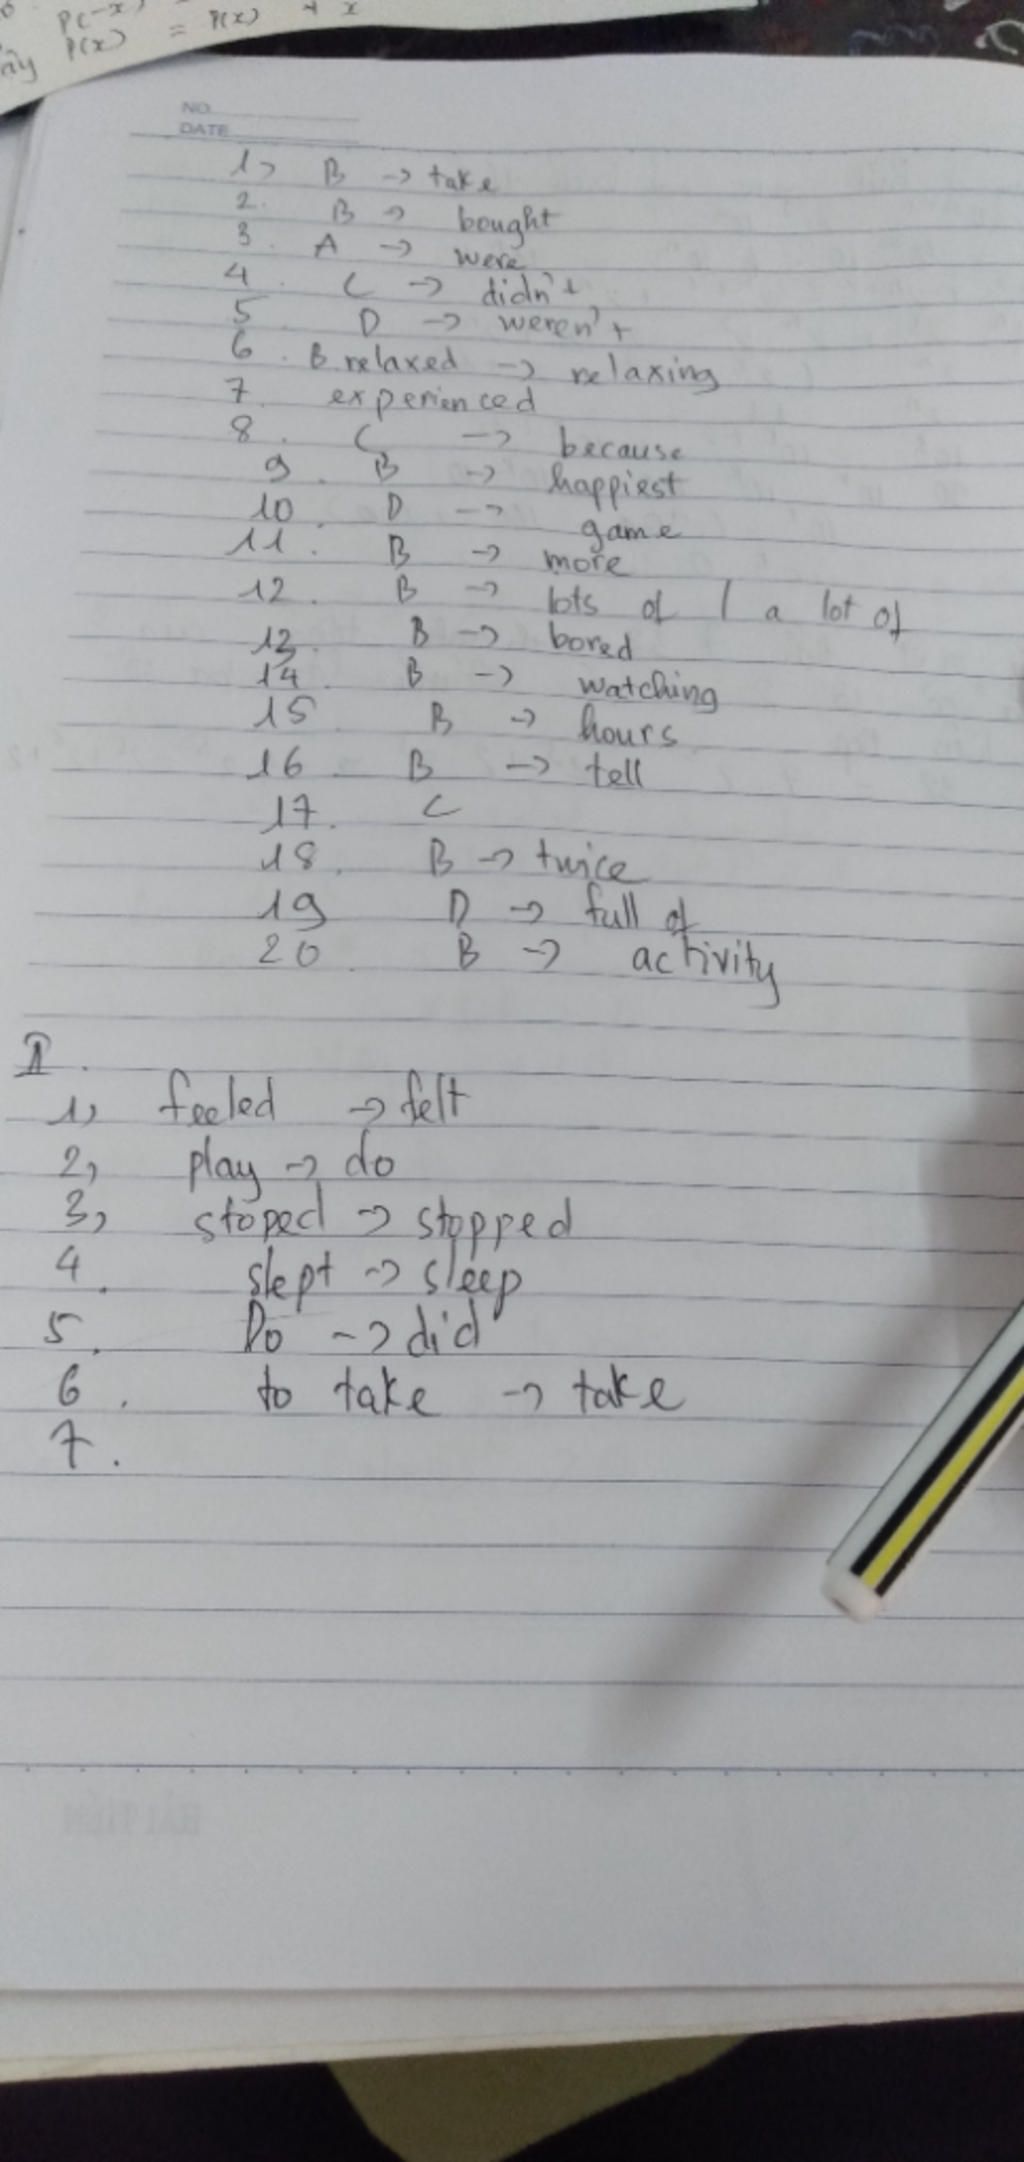 P(-x)
P(x) = P(x) + x
NO
DATE
1, B -> take
2. B -> bought
3. A -> were
4. C -> didn't
5. D -> weren't
6. B relaxed -> relaxing
7. experienced
8. C -> because
9. B -> happiest
10. D -> game
11. B -> more
12. B -> lots of / a lot of
13. B -> bored
14. B -> watching
15 B -> hours
16 B -> tell
17. C
18. B -> twice
19 D -> full of
20. B -> activity
I.
1, feeled -> felt
2, play -> do
3, stoped -> stopped
4. slept -> sleep
5. Do -> did
6. to take -> take
7.